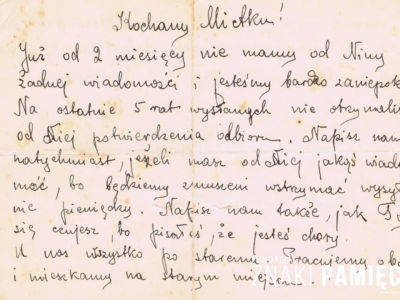 Kochany Mietku!
Już od 2 miesięcy nie mamy od Niny
żadnej wiadomości i jesteśmy bardzo zaniepok
Na ostatnie 5 rat wysłanych nie otrzymaliś
od Niej potwierdzenia odbioru. Napisz nam
natychmiast, jeżeli masz od Niej jakąś wiado
mość, bo będziemy zmuszeni wstrzymać wysył
nie pieniędzy. Napisz nam także, jak Ty
się czujesz, bo pisałeś, że jesteś chory.
U nas wszystko po staremu. Pracujemy oba
i mieszkamy na starym
ZNAKI PAMIĘC